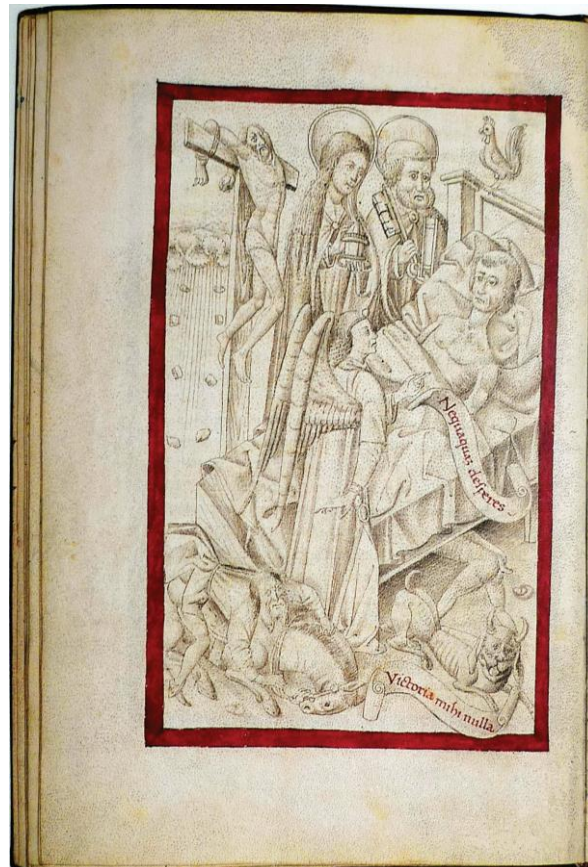 Nequaquaz desperes
Victoria mihi nulla